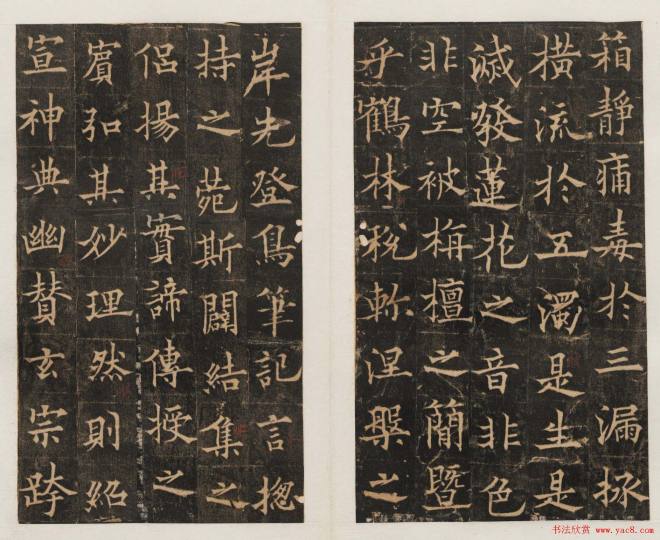 箱靜痛毒於三漏拯
橫流於五濁是生是
滅發蓮花之音非色
非空被栴檀之簡暨
乎鶴林稅軫涅槃之
岸先登鳥筆記言揔
持之菀斯闢結集之
侶揚其實諦傳授之
賓弘其妙理然則紹
宣神典幽贊玄宗跨
书法欣赏 www.yac8.com